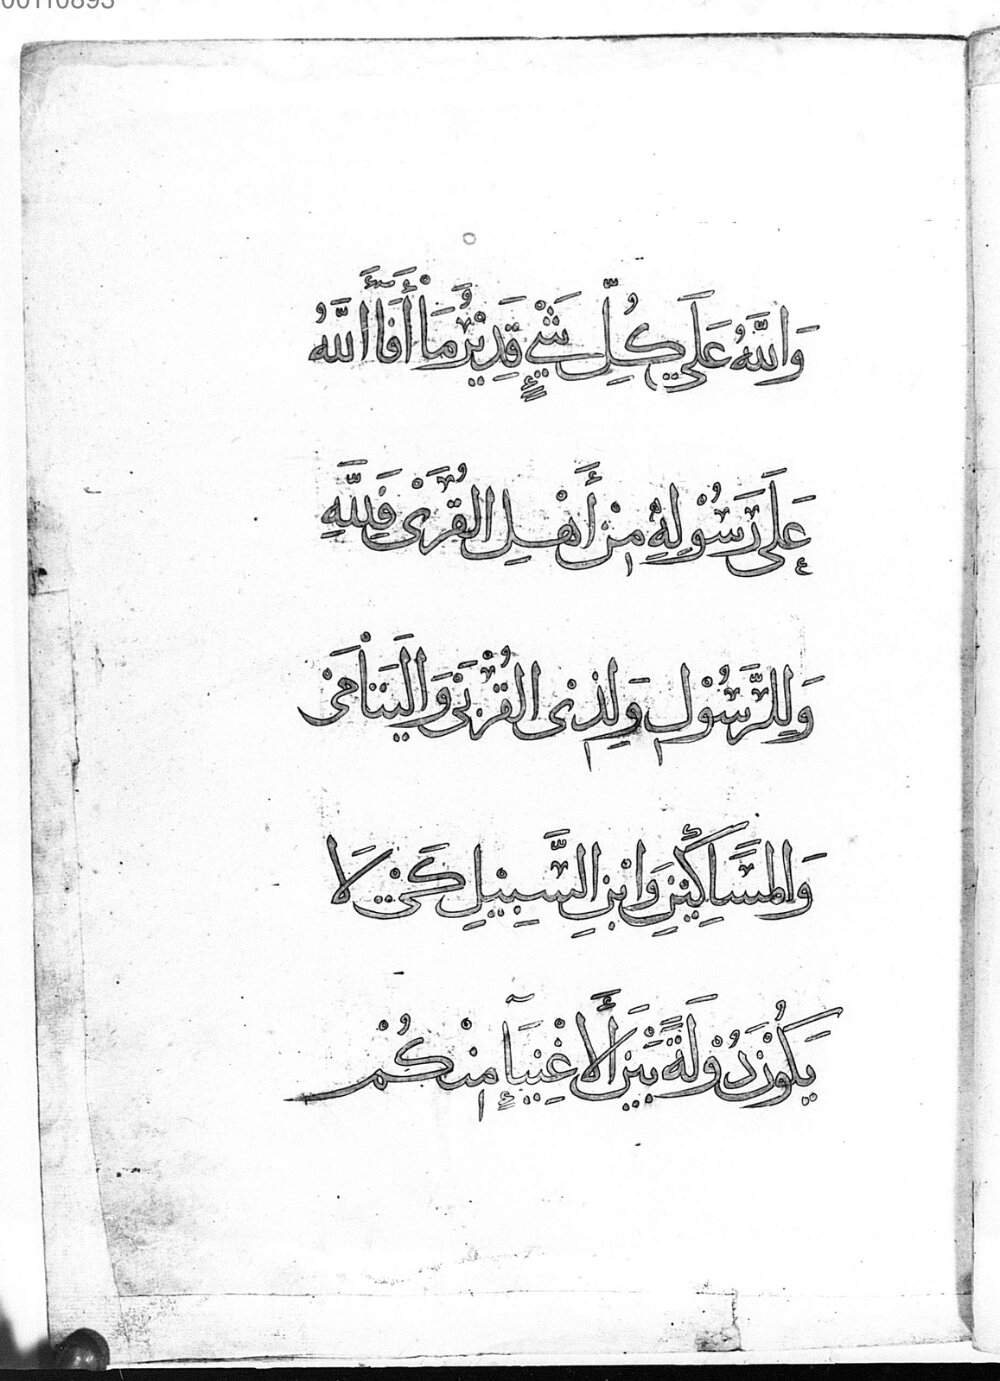 00110893
وَاللَّهُ عَلَى كُلِّ شَيْءٍ قَدِيْرٌ مَاْ أَفَاَأَ اللَّهُ
عَلَى رَسُوْلِهِ مِنْ أَهْلِ الْقُرَىْ فَلِلَّهِ
وَلِلرَّسُوْلِ وَلِذِى الْقُرْبَى وَالْيَتَاْمَى
وَالْمَسَاكِيْنِ وَابْنِ السَّبِيْلِ كَيْ لَا
يَكُوْنَ دُوْلَةً بَيْنَ الْأَغْنِيَآءِ مِنْكُمْ